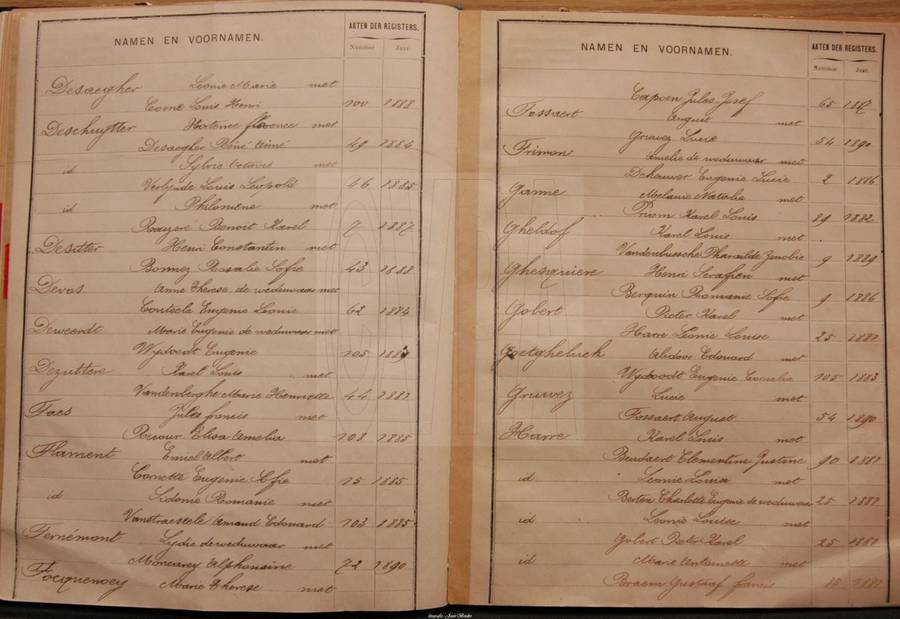 NAMEN EN VOORNAMEN.
AKTEN DER REGISTERS.
Nummer Jaar
Desaegher Leonie Marie met
Come Louis Henri 100 1888
Deschuytter Hortence florence met
Desaegher René Aimé 49 1884
id Sylvie Octavie met
Louis Leopold 46 1885
id Philomene met
Benoit Karel 7 1887
Desitter Henri Constantin met
Bonnez Rosalie Sofie 43 1888
Devos Anne Therese de weduwaar met
Eugenie Leonie 62 1884
Deweerdt Marie Eugenie de weduwaar met
Wydoodt Eugenie 105 1883
Dezuttere Karel Louis met
Vandenberghe Marie Henriette 44 1881
Faes Jules francis met
Elisa Amelia 108 1885
Flament Emiel Albert met
Cornette Eugenie Sofie 15 1885
id Sidonie Romanie met
Vanstraceele Amand Edouard 103 1885
Fernémont Lydie de weduwaar met
Moncarey Alphonsine 72 1890
Focquenoey Marie Therese met
NAMEN EN VOORNAMEN.
AKTEN DER REGISTERS.
Nummer Jaar
Capoen Jules Josef 65
Fossaert August met
Gruwez Lucie 54 1890
Frimon Amelie de weduwaar met
Eugenie Lucie 2 1886
Game Melanie Natalie met
Priem Karel Louis 89 1882
Gheldof Karel Louis met
Vandenbussche Pharailde Zenobie 9 1889
Ghesquiere Henri Serafien met
Berquin Romanie Sofie 9 1886
Gobert Pieter Karel met
Harre Leonie Louise 25 1881
Goetgheluck Alidoor Edouard met
Wydoodt Eugenie Cornelia 105 1883
Gruwez Lucie met
Fossaert August 54 1890
Harre Karel Louis met
Beudaert Clementine Justine 90 1881
id Leonie Louisa met
Charlotte Eugenie de weduwaar 25 1881
id Leonie Louise met
Gobert Pieter Karel 25 1881
id Marie Antoinette met
Braem Gustaaf francis 15 1881